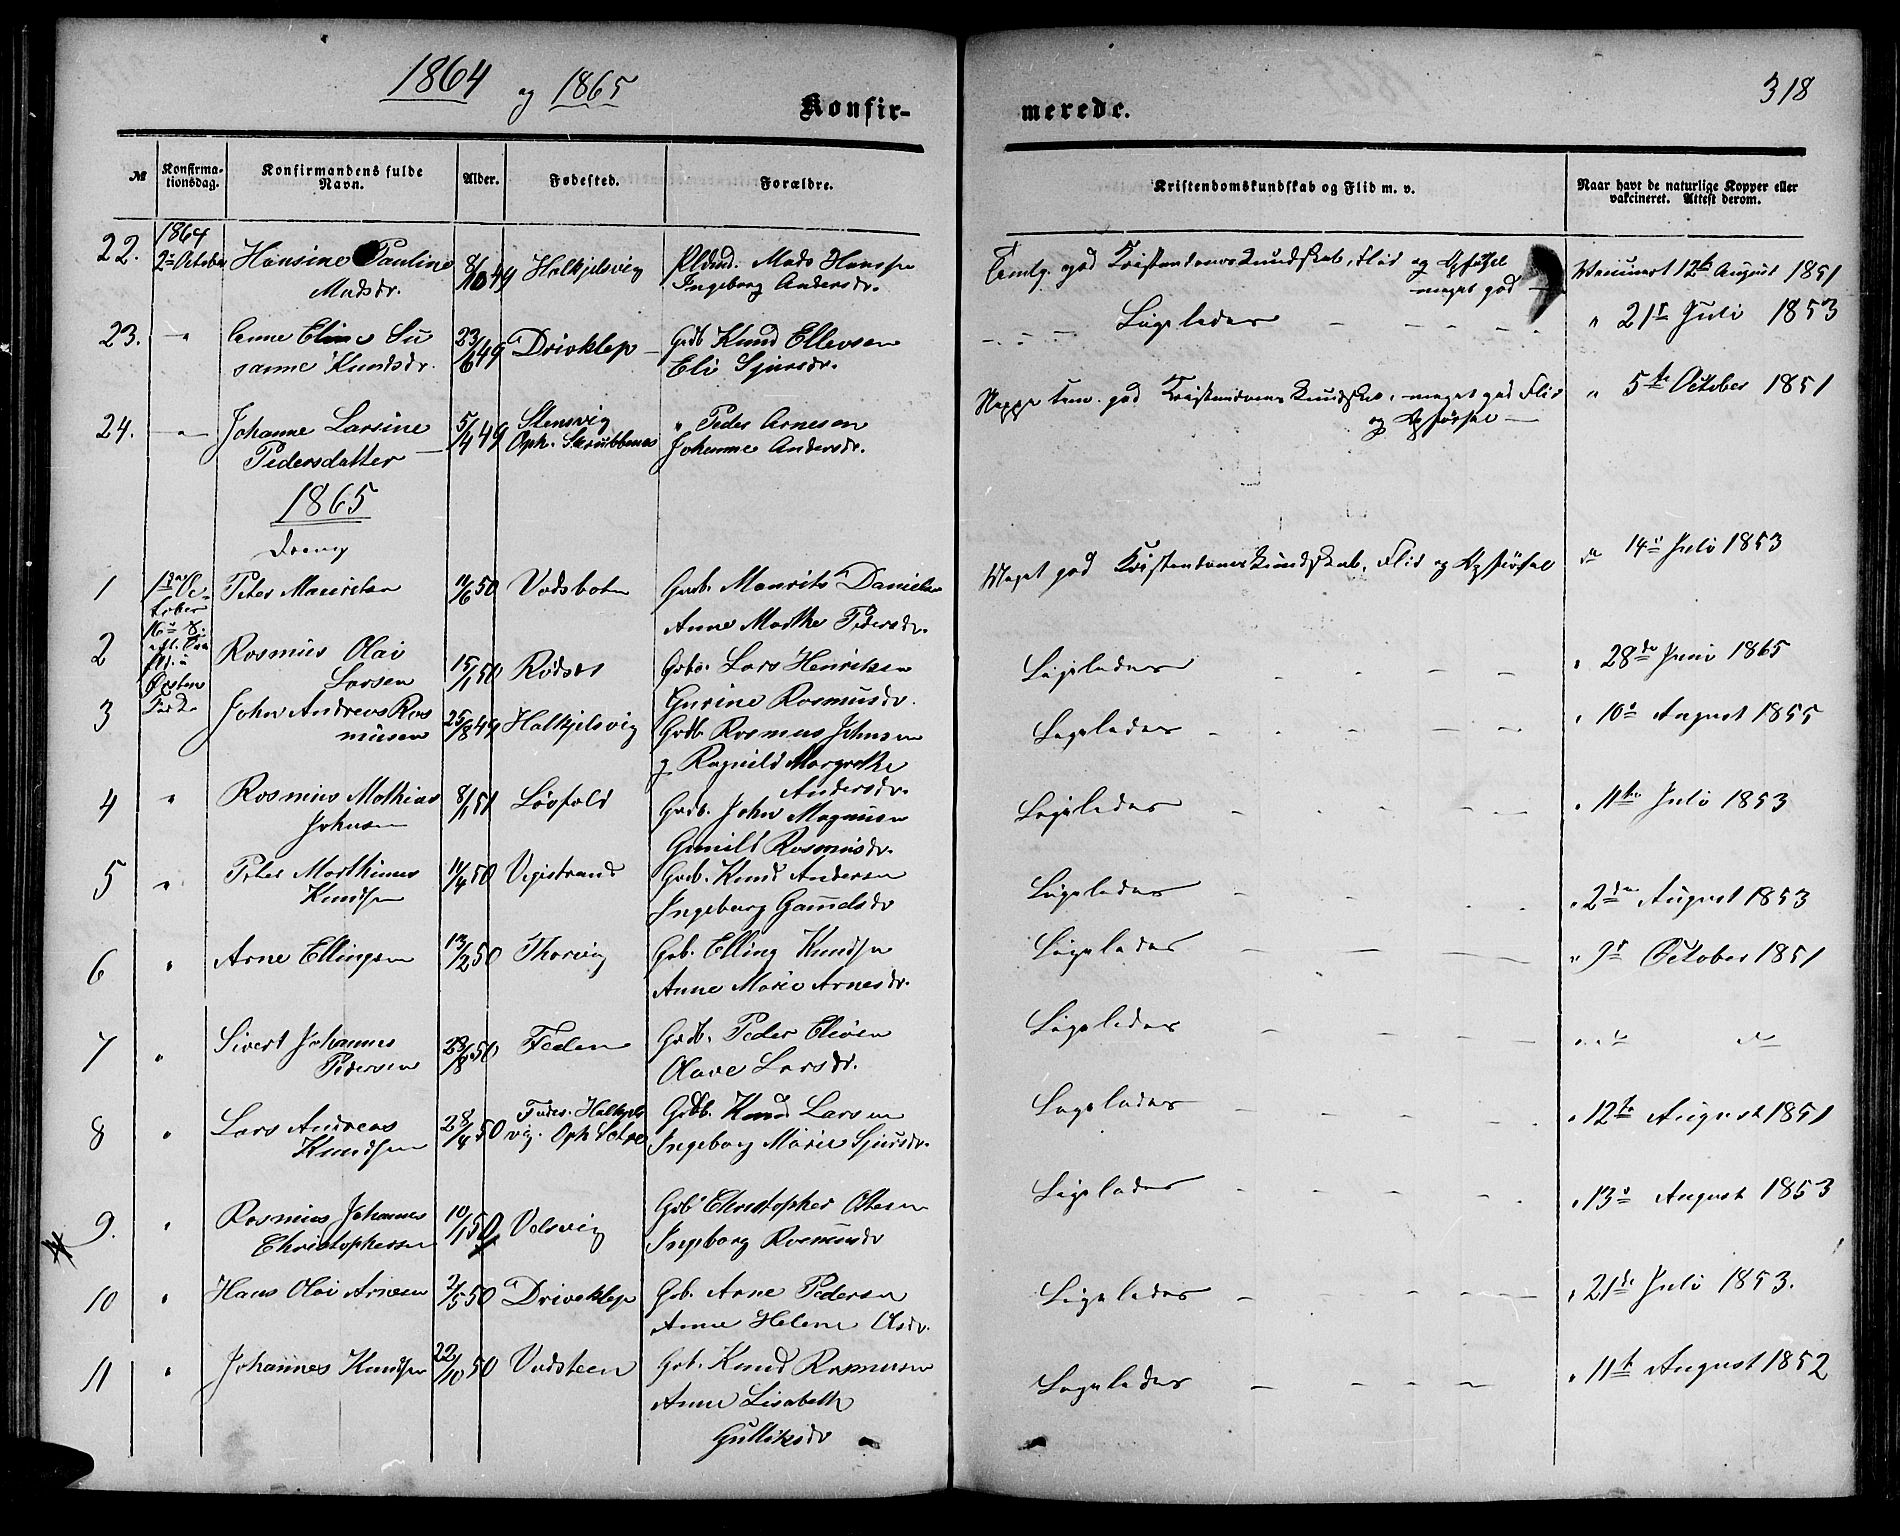 1864 og 1865
Konfir-
merede.
318
№
Konfirma-
tionsdag.
Konfirmandens fulde
Navn.
Alder.
Fødested.
Forældre.
Kristendomskundskab og Flid m. v.
Naar havt de naturlige Kopper eller
vakcineret. Attest derom.
22. 1864
2den October Hansine Pauline Madsdr. 8/10 49 Halkjelsvig Mads Hanssen
Ingeborg Andersdr. Temlg. god Kristendomskundskab, Flid og Opførsel
meget god Vaccineret 12te August 1851
23. " Anne Eline Su
sanne Knudsdr. 23/6 49 Driveklep Grdb Knud Ellevsen
Eli Sjursdr. Ligeledes " 21de Juli 1853
24. " Johanne Larsine
Pedersdatter 5/4 49 Stensvig
Oph. Skrubbenes " Peder Arnesen
Johanne Andersdr. Neppe tem. god Kristendomskundskab, meget god Flid
og Opførsel " 5te October 1851
1865
Dreng
1 1ste Oc-
tober Peter Mauritsen 11/6 50 Vadsboten Grdb. Maurits Danielsen
Anne Marthe Pedersdr. Meget god Kristendomskundskab, Flid og Opførsel " 14de Juli 1853
2 Rasmus Olai
Larsen 15/1 50 Rødset Grdb. Lars Henriksen
Gurine Rasmusdr. Ligeledes " 28de Juni 1865
3 John Andreas Ras
musen 25/8 49 Halkjelsvig Grdb Rasmus Johnsen
og Ragnild Margrethe
Andersdr. Ligeledes " 10de August 1855
4 " Rasmus Mathias
Johnsen 8/1 51 Løvfold Grdb. John Magnusen
Gunild Rasmusdr. Ligeledes " 11te Juli 1853
5 " Peter Marthinus
Knudsen 11/4 50 Vigestrand Grdb. Knud Andersen
Ingeborg Gamelsdr Ligeledes " 2den August 1853
6 " Arne Ellingsen 13/2 50 Thorvig Grb. Elling Knudsen
Anne Marie Arnesdr. Ligeledes " 9de October 1851
7 " Sivert Johannes
Pedersen 28/8 50 Feden Grdb. Peder Eliasen
Olave Larsdr. Ligeledes " do do
8 " Lars Andreas
Knudsen 28/4 50 Halkjels
vig. Oph Sætre Grdb. Knud Larsen
Ingeborg Marie Sjursdr. Ligeledes " 12te August 1851
9. " Rasmus Johannes
Christophersen 10/1 50 Velsvig Grb Christopher Olsen
Ingeborg Rasmusdr Ligeledes " 13de August 1853
10 " Hans Olai Arnesen 2/5 50 Driveklep Grb. Arne Pedersen
Anne Helene Olsdr. Ligeledes " 21de Juli 1853.
11 " Johannes Knudsen 22/10 50 Vadsteen Grb. Knud Rasmusen
Anne Lisabeth
Gulliksdr Ligeledes " 11te August 1852